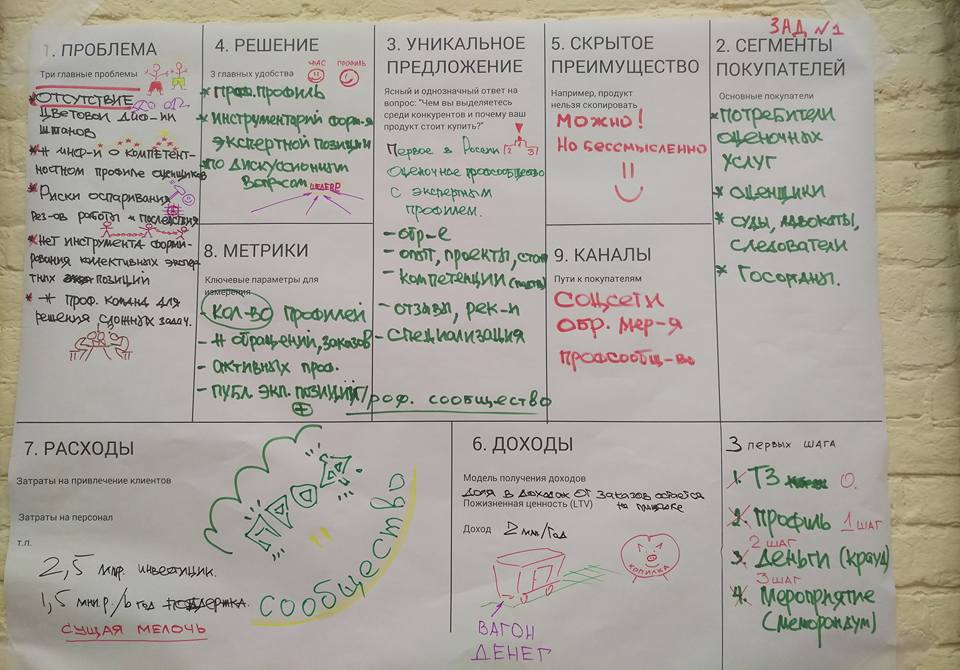 ЗАД №1
1. ПРОБЛЕМА
Три главные проблемы
* ОТСУТСТВИЕ
ЦВЕТОВОЙ
ШТАНОВ
* # инф-и о компетент-
ностном профиле оценщиков
* Риски оспаривания
рез-ов работы и последствия
* Нет инструмента форми-
рования коллективных экспер
тных позиций
* # проф. команд для
решения сложных задач.
4. РЕШЕНИЕ
3 главных удобства
ЧАС
ПРОФИЛЬ
* Проф. профиль
* инструментарий форм-я
экспертной позиции
* по дискуссионным
вопросам
3. УНИКАЛЬНОЕ
ПРЕДЛОЖЕНИЕ
Ясный и однозначный ответ на
вопрос: "Чем вы выделяетесь
среди конкурентов и почему ваш
продукт стоит купить?"
2 1 3
Первое в России
Оценочное профсообщество
с экспертным
профилем.
- обр-е
- опыт, проекты,
- компетенции
- отзывы, рек-и
- специализация
5. СКРЫТОЕ
ПРЕИМУЩЕСТВО
Например, продукт
нельзя скопировать
Можно!
Но бессмысленно
2. СЕГМЕНТЫ
ПОКУПАТЕЛЕЙ
Основные покупатели
* Потребители
оценочных
услуг
* оценщики
* суды, адвокаты,
следователи
* Госорганы.
8. МЕТРИКИ
Ключевые параметры для
измерения
- КОЛ-ВО профилей
- # обращений, заказов
- активных проф.
- ПУБЛ. ЭКП. ПОЗИЦИЙ
Проф. сообщество
9. КАНАЛЫ
Пути к покупателям
Соцсети
обр. мер-я
профсообщ-во
7. РАСХОДЫ
Затраты на привлечение клиентов
Затраты на персонал
т.п.
2,5 млр. инвестиции.
1,5 млн р./в год поддержка.
СУЩАЯ МЕЛОЧЬ
сообщество
6. ДОХОДЫ
Модель получения доходов
Доля в доходах от заказов остается
на площадке
Пожизненная ценность (LTV)
Доход 2 млн/год
КОПИЛКА
ВАГОН
ДЕНЕГ
3 первых шага
1. ТЗ 0.
2. Профиль 1 шаг
2 шаг
3. Деньги (крауд)
3 шаг
4. Мероприятие
(меморандум)